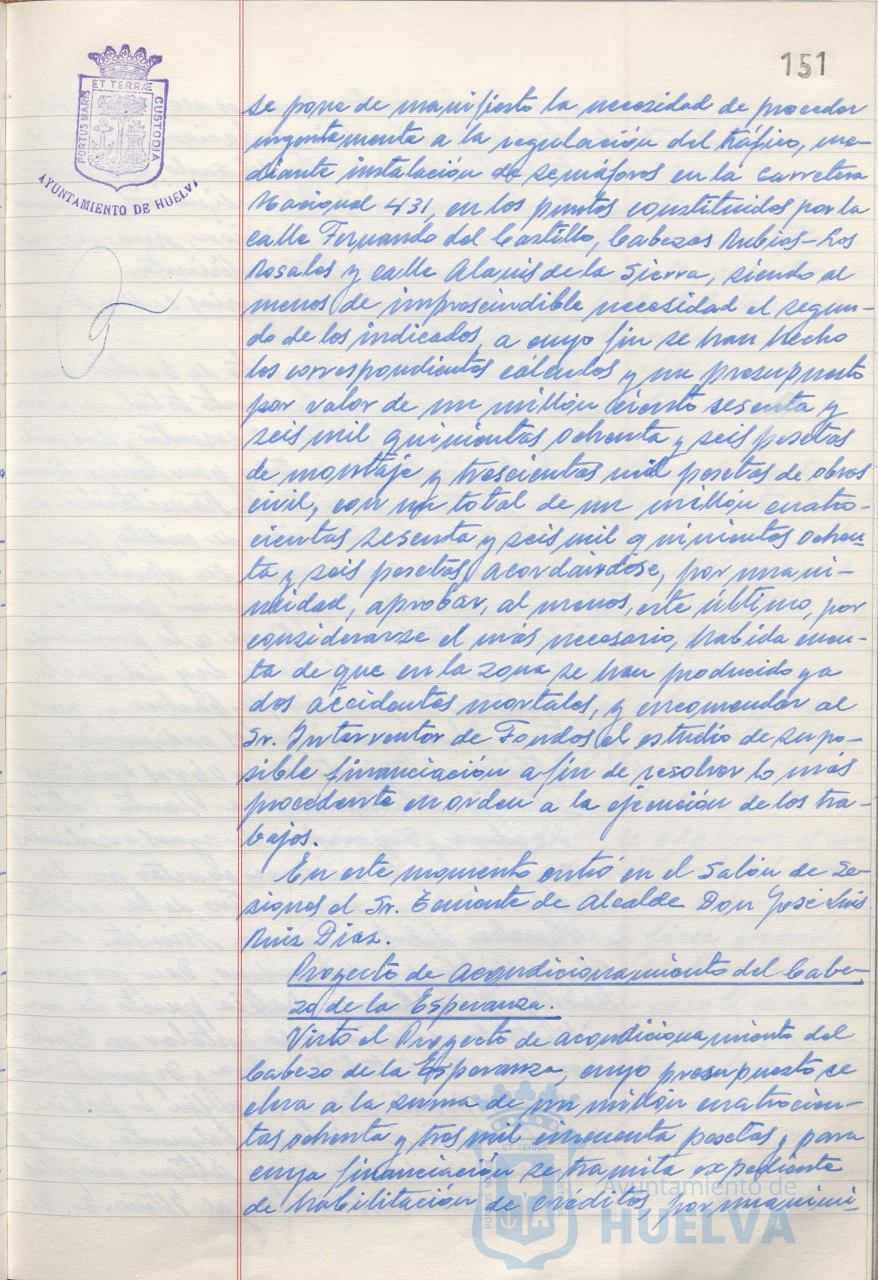 151
ET TERRÆ
PORTUS MARIS
CUSTODIA
AYUNTAMIENTO DE HUELVA
se pone de manifiesto la necesidad de proceder
urgentemente a la regulación del tráfico, me-
diante instalación de semáforos en la carretera
Nacional 431, en los puntos constituidos por la
calle Fernando del Castillo, Cabezas Rubias-Los
Rosales y calle Alanis de la Sierra, siendo al
menos de imprescindible necesidad el segun-
do de los indicados, a cuyo fin se han hecho
los correspondientes cálculos y un presupuesto
por valor de un millón ciento sesenta y
seis mil quinientas ochenta y seis pesetas
de montaje y trescientas mil pesetas de obras
civil, con un total de un millón cuatro-
cientas sesenta y seis mil quinientos ochen-
ta y seis pesetas, acordándose, por unani-
midad, aprobar, al menos, este último, por
considerarse el más necesario, habida cuen-
ta de que en la zona se han producido ya
dos accidentes mortales, y encomendar al
Sr. Interventor de Fondos el estudio de su po-
sible financiación a fin de resolver lo más
procedente en orden a la ejecución de los tra-
bajos.
En este momento entró en el Salón de Se-
siones el Sr. Teniente de Alcalde Don José Luis
Ruiz Díaz.
Proyecto de acondicionamiento del Cabe-
zo de la Esperanza.
Visto el Proyecto de acondicionamiento del
Cabezo de la Esperanza, cuyo presupuesto se
eleva a la suma de un millón cuatrocien-
tas ochenta y tres mil cincuenta pesetas y para
cuya financiación se tramita expediente
de habilitación de créditos, por unanimi-
Ayuntamiento de
HUELVA